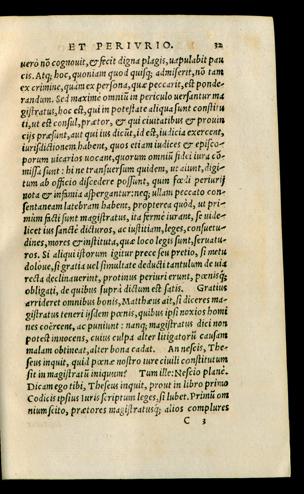 ET PERIVRIO. 32
uero nō cognouit, & fecit digna plagis, uapulabit pau
cis. Atq; hoc, quoniam quod quisq; admiserit, nō tam
ex crimine, quàm ex persona, quæ peccarit, est ponde-
randum. Sed maxime omniū in periculo uersantur ma
gistratus, hoc est, qui in potestate aliqua sunt constitu
ti, ut est consul, prætor, & qui ciuitatibus & prouin
cijs præsunt, aut qui ius dicūt, id est, iudicia exercent,
iurisdictionem habent, quos etiam iudices & episco-
porum uicarios uocant, quorum omniū fidei iura cō-
missa sunt: hi ne transuersum quidem, ut aiunt, digi-
tum ab officio discedere possunt, quin fœdi periurij
nota & infamia aspergantur: neq; ullam peccato con-
sentaneam latebram habent, propterea quòd, ut pri-
mùm facti sunt magistratus, ita ferme iurant, se uide-
licet ius sanctè dicturos, ac iustitiam, leges, consuetu-
dines, mores & instituta, quæ loco legis sunt, seruatu-
ros. Si aliqui istorum igitur prece seu pretio, si metu
dolóue, si gratia uel simultate deducti tantulum de uia
recta declinauerint, protinus periuri erunt, pœnisq;
obligati, de quibus suprà dictum est satis. Gratius
arrideret omnibus bonis, Matthæus ait, si diceres ma-
gistratus teneri ijsdem pœnis, quibus ipsi noxios homi
nes coërcent, ac puniunt: nanq; magistratus dici non
potest innocens, cuius culpa alter litigatorū causam
malam obtineat, alter bona cadat. An nescis, The-
seus inquit, quid pœnæ nostro iure ciuili constitutum
sit in magistratū iniquum? Tum ille: Nescio planè.
Dicam ego tibi, Theseus inquit, prout in libro primo
Codicis ipsius Iuris scriptum leges, si lubet. Primū om
nium scito, prætores magistratusq; alios complures
C 3